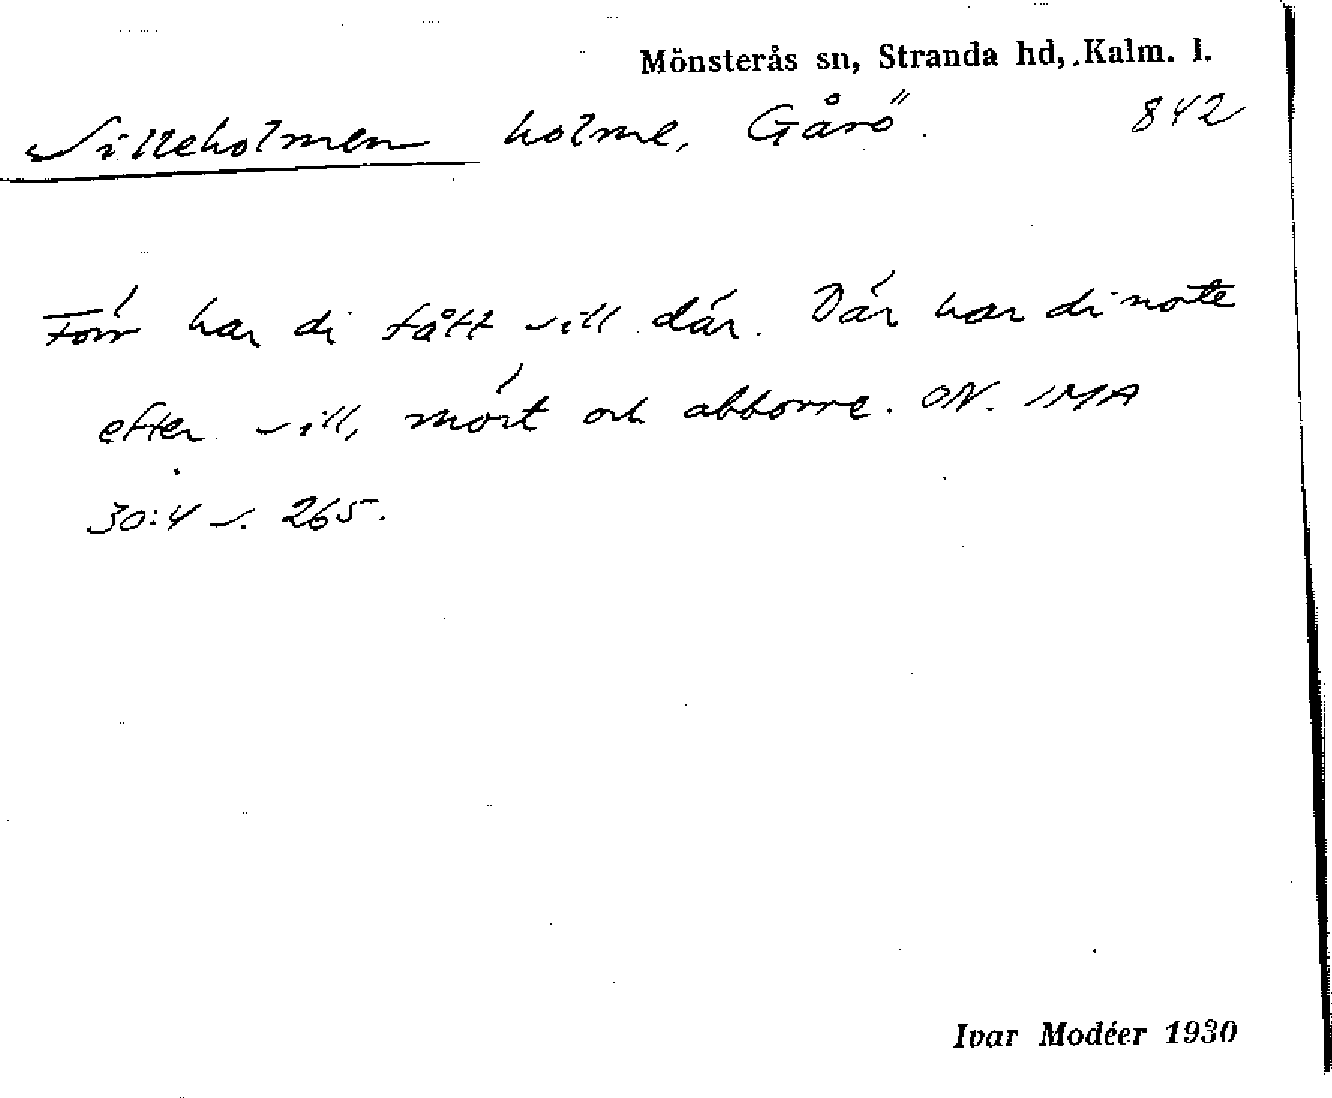 Mönsterås sn, Stranda hd, Kalm. l.
Silleholmen holme, Gårö. 842
Förr har di fått sill där. Där har di note
efter sill, mört och abborre. ON. IMA
30:4 s. 265.
Ivar Modéer 1930